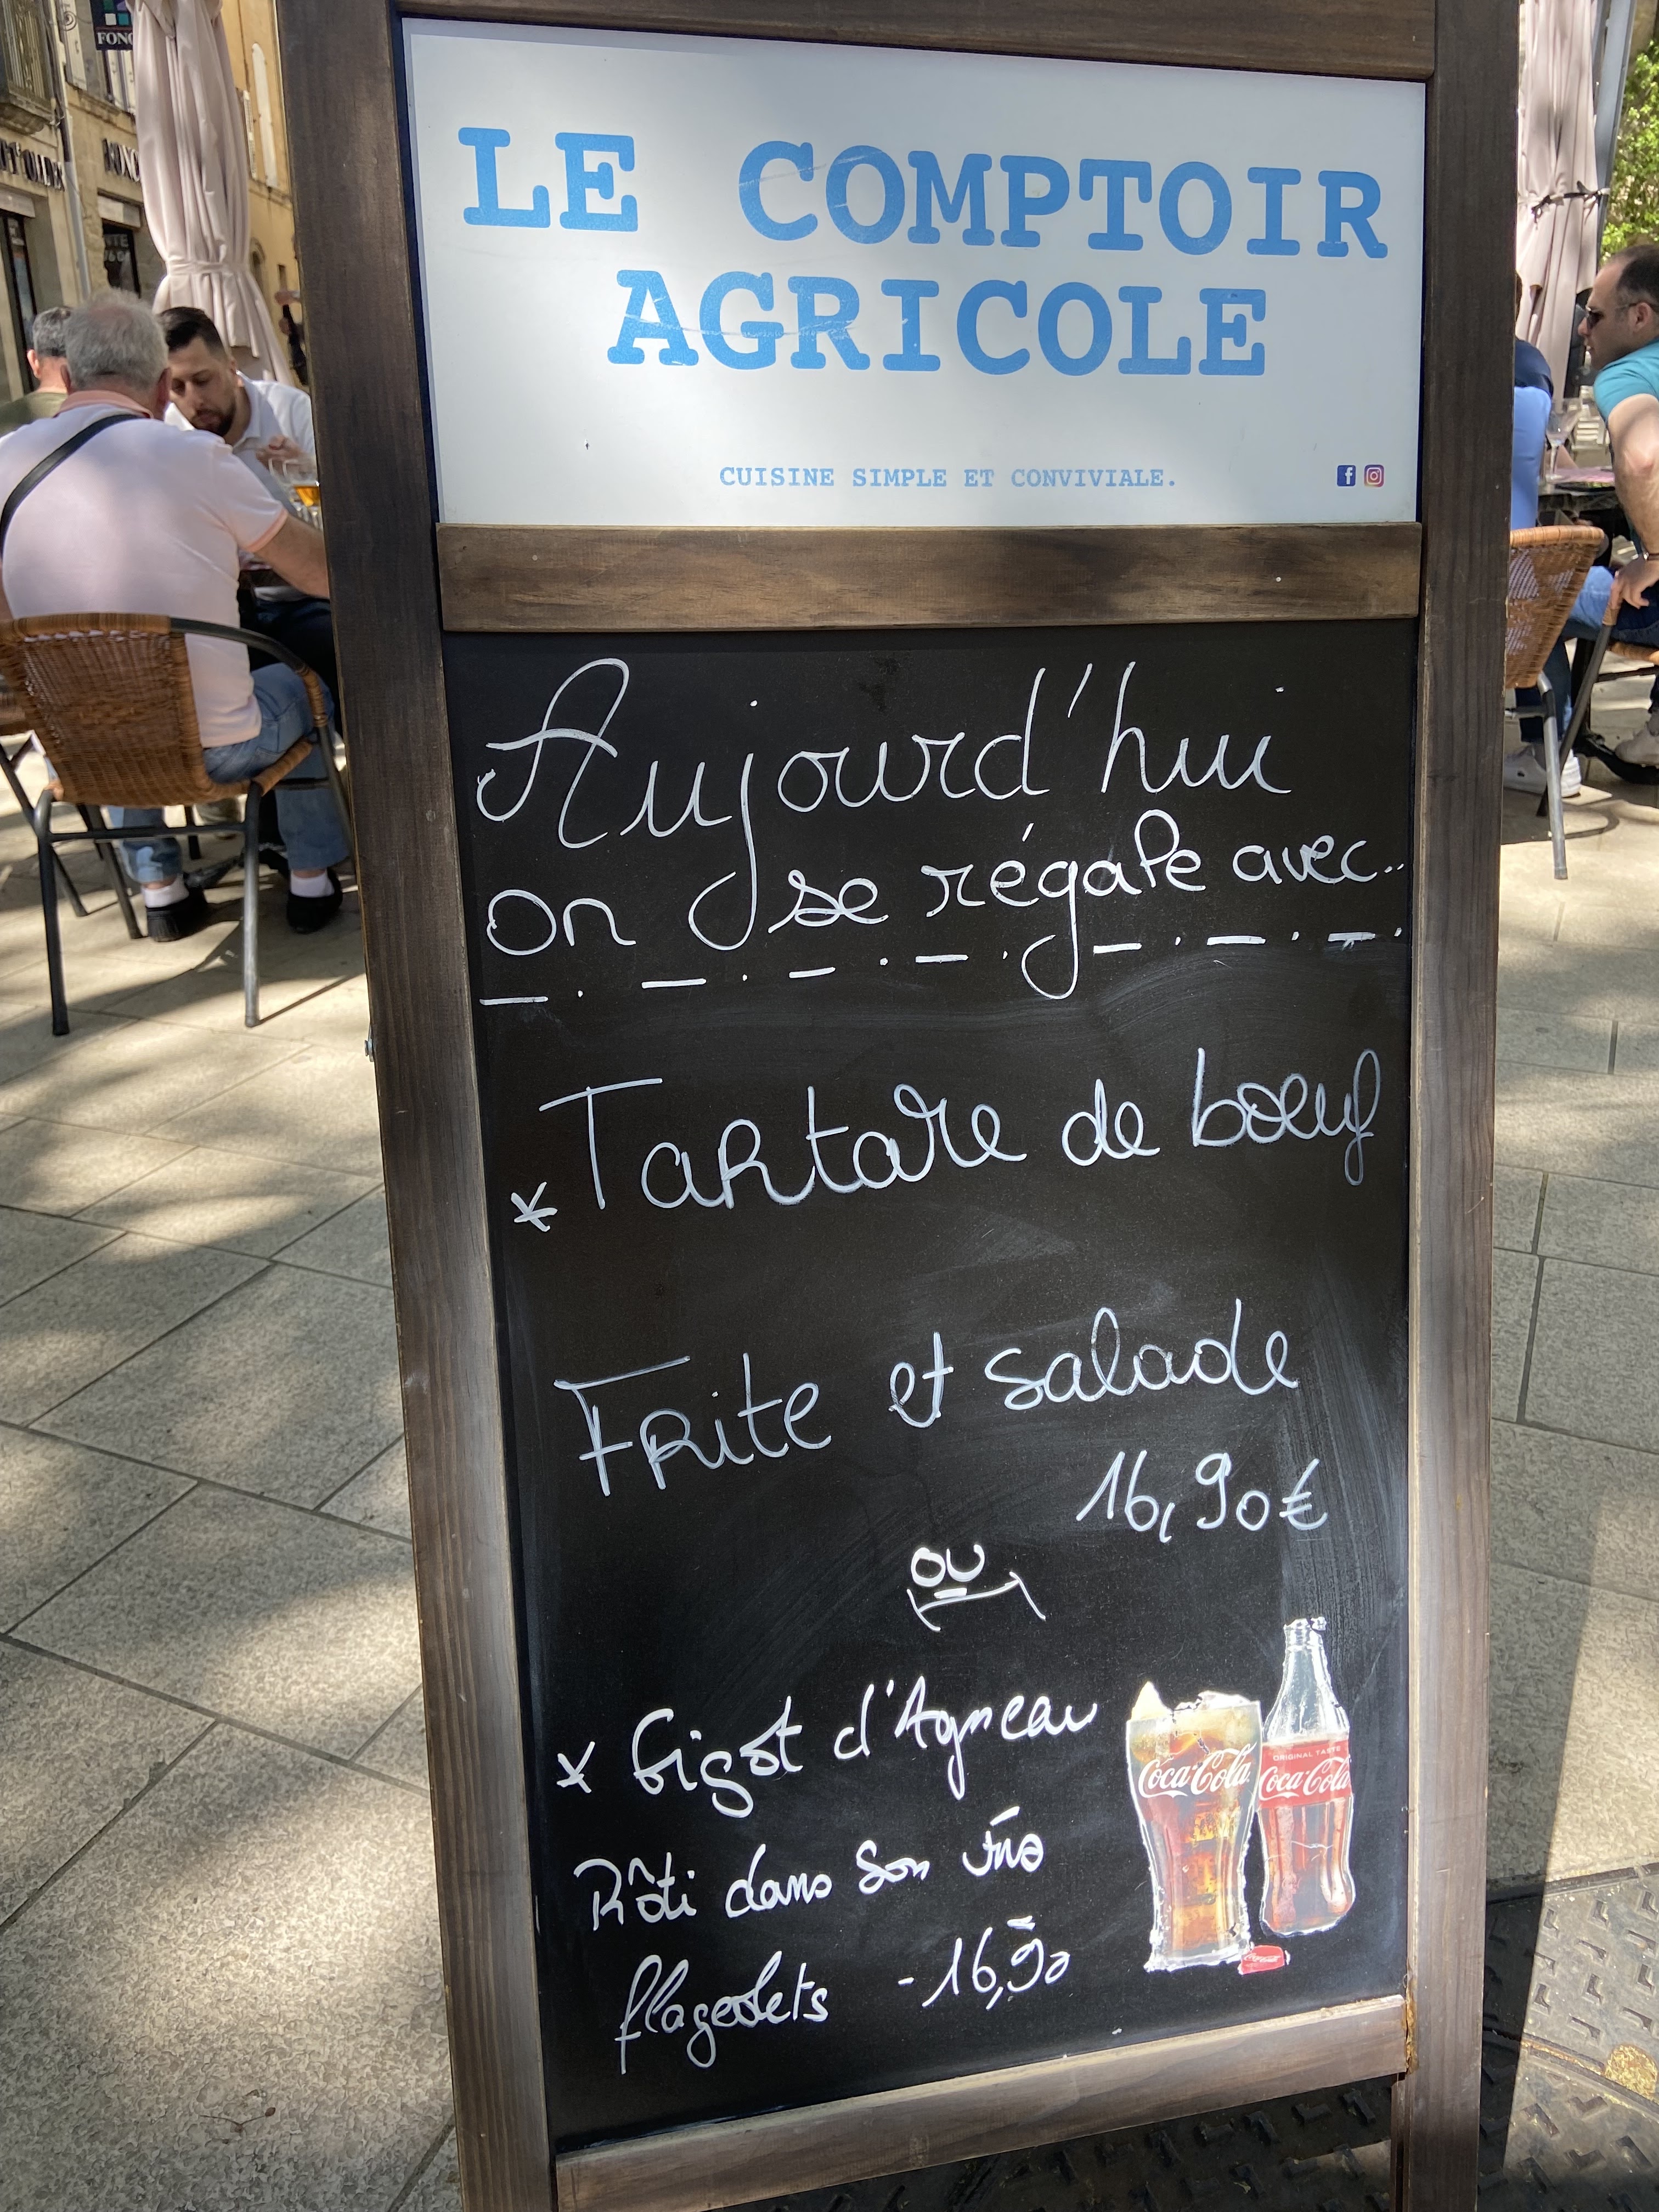 FONC
LE COMPTOIR
AGRICOLE
CUISINE SIMPLE ET CONVIVIALE.
Aujourd'hui
on se régale avec..
* Tartare de boeuf
Frite et salade
16,90€
ou
* Gigot d'Agneau
Rôti dans son Jus
flageolets - 16,90
Coca-Cola
ORIGINAL TASTE
Coca-Cola